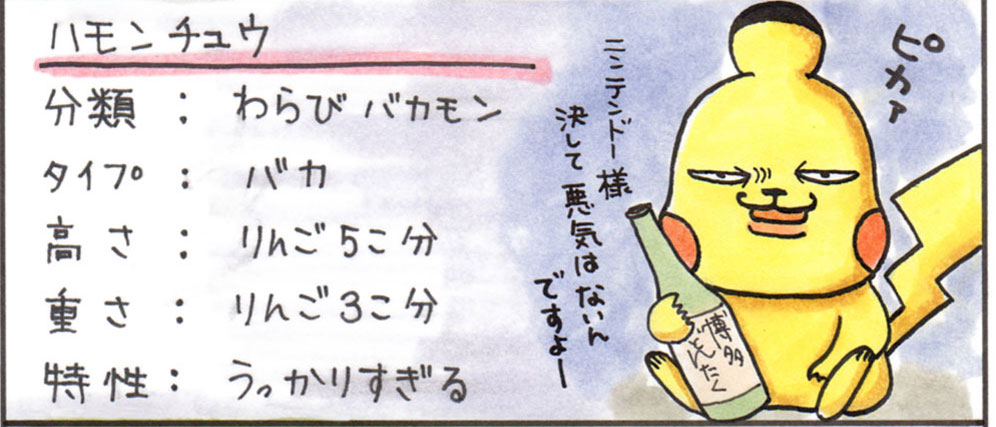 ハモンチュウ
分類：わらびバカモン
タイプ：バカ
高さ：りんご5こ分
重さ：りんご3こ分
特性：うっかりすぎる
ニンテンドー様
決して悪気はないん
ですよー
ピカァ
博多
どんたく